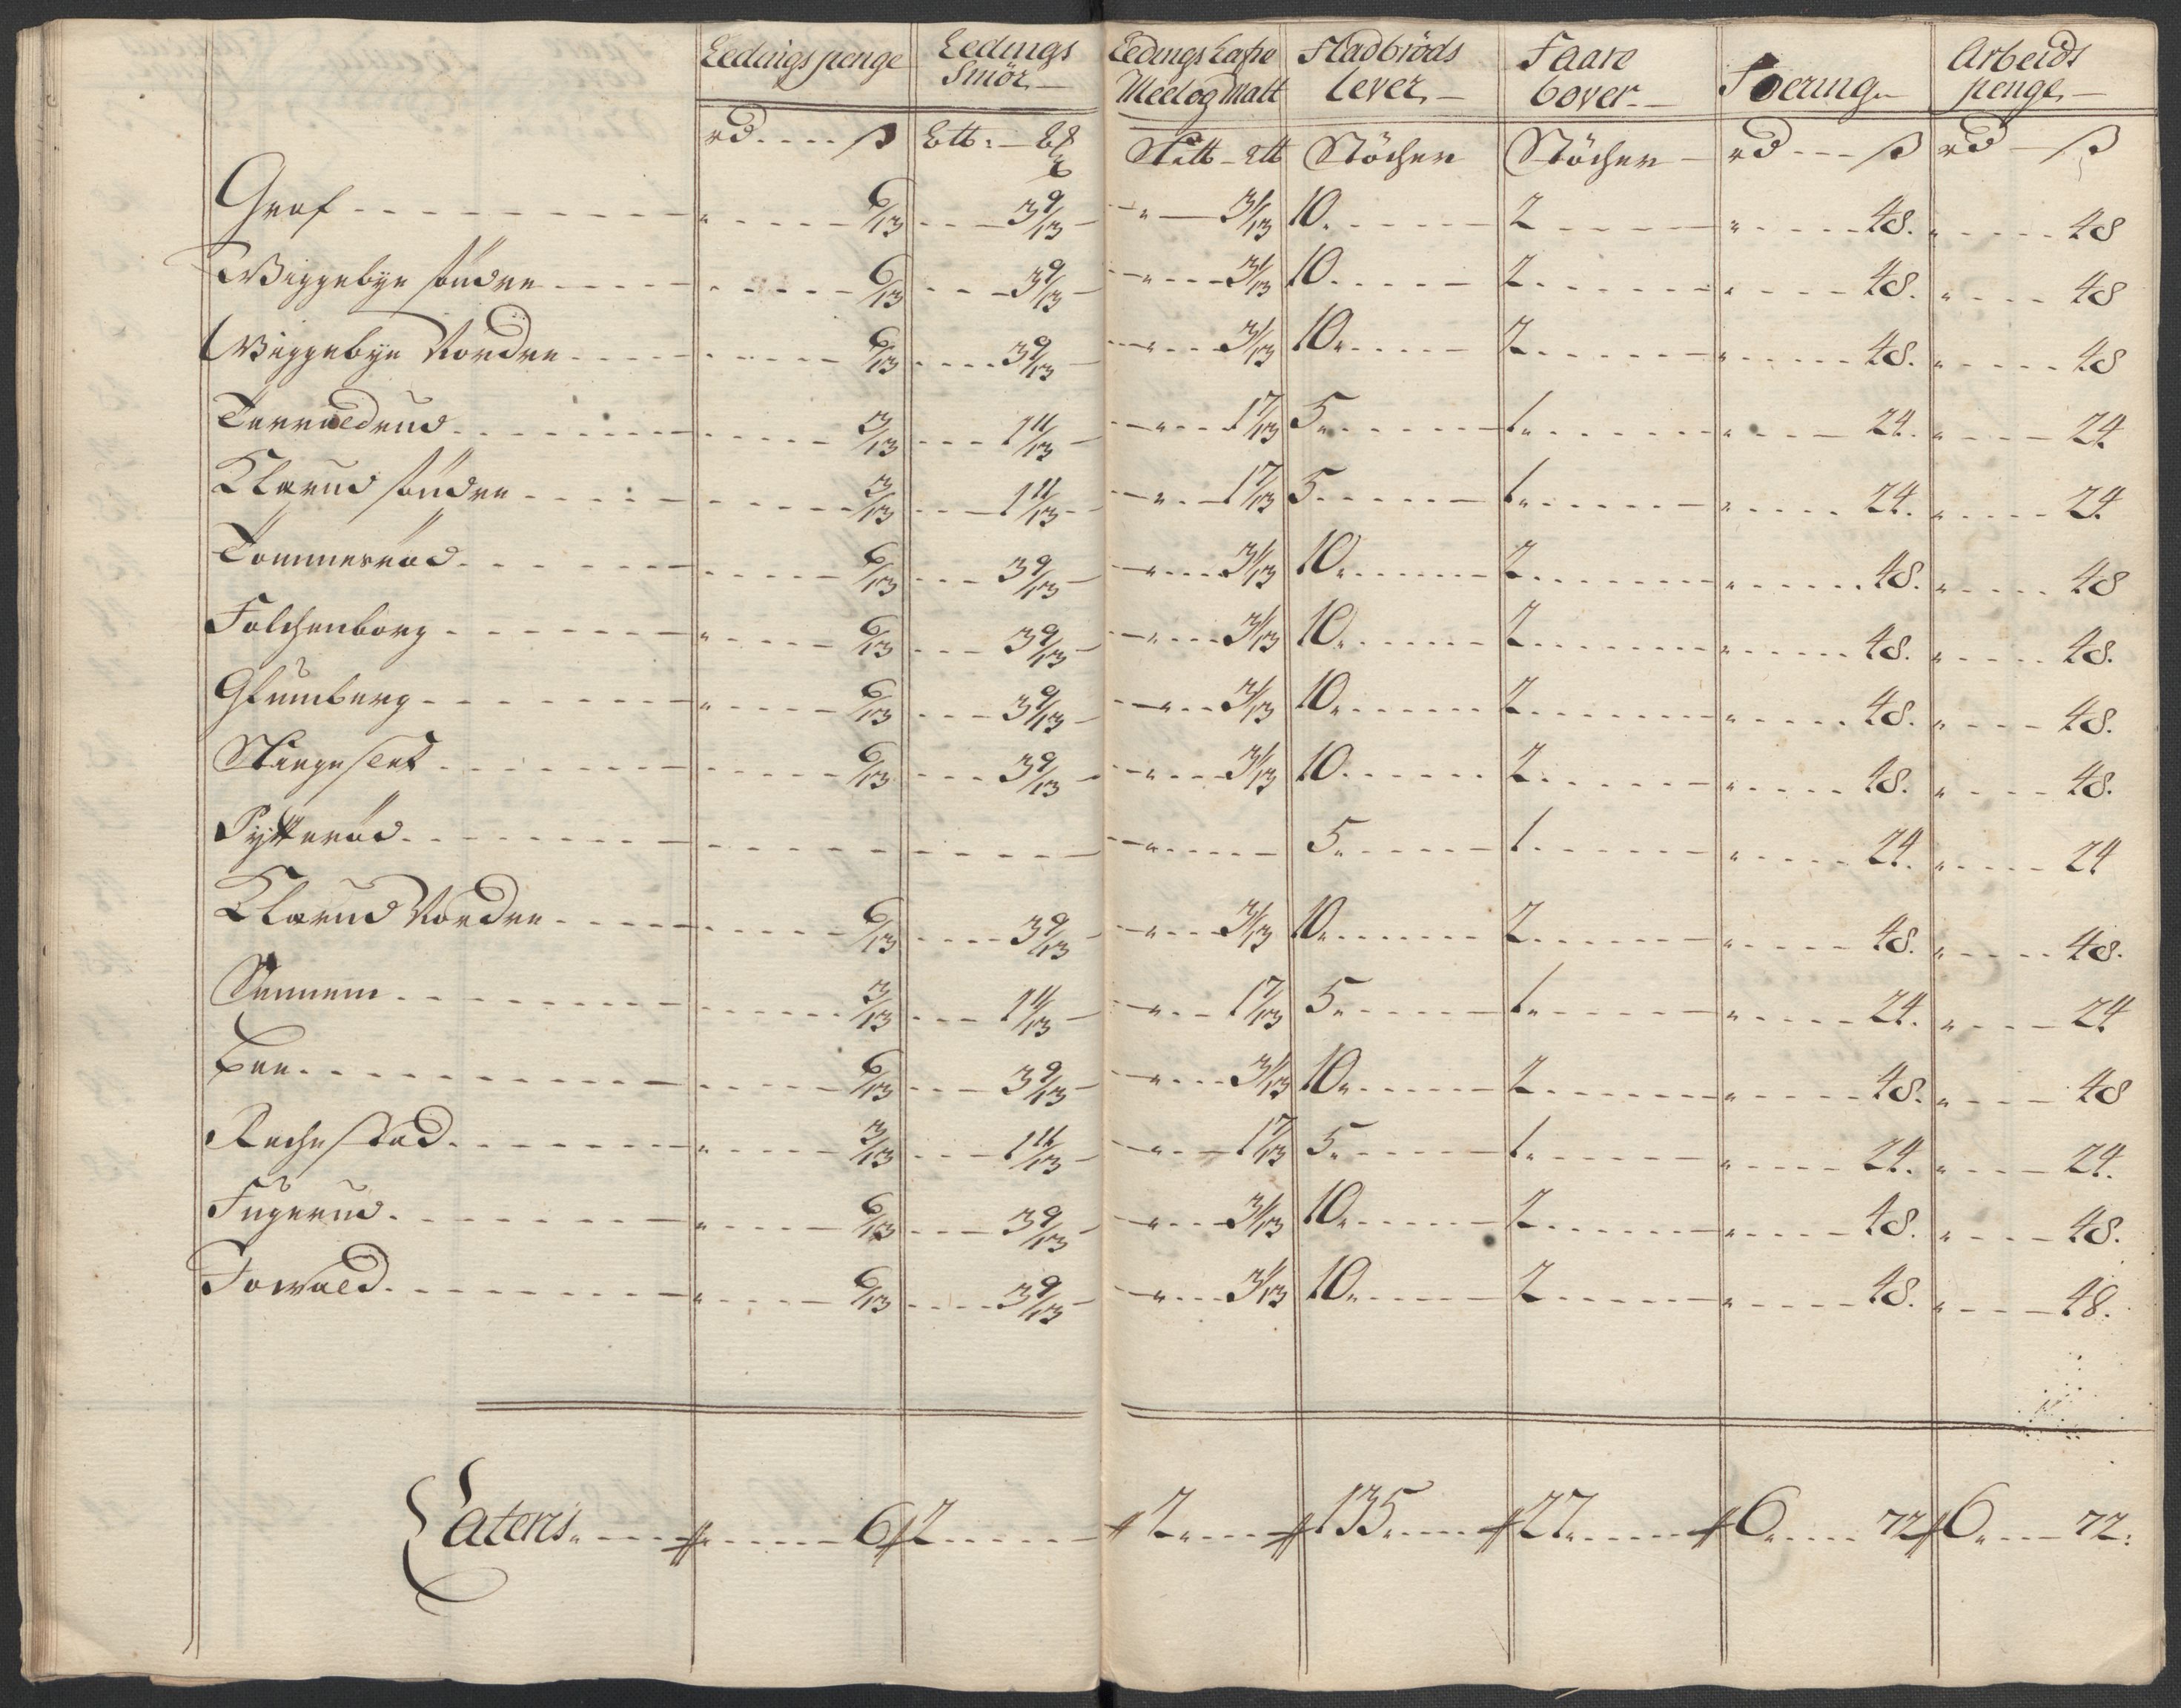 Ledings penge | Ledings Smör | Ledings Lafse Meel og Malt | Fladbröds Lever | Faare bover | Foering | Arbeids penge
rd ß | | | Stöcher | Stöcher | rd ß | rd ß
Graf | 6/13 | 3 9/13 | 3 1/13 | 10 | 2 | 48 | 48
Wiggebye søndre | 6/13 | 3 9/13 | 3 1/13 | 10 | 2 | 48 | 48
Wiggebye Nordre | 6/13 | 3 9/13 | 3 1/13 | 10 | 2 | 48 | 48
Tarraldrud | 3/13 | 1 11/13 | 1 7/13 | 5 | 1 | 24 | 24
Klarud søndre | 3/13 | 1 11/13 | 1 7/13 | 5 | 1 | 24 | 24
Tommeröd | 6/13 | 3 9/13 | 3 1/13 | 10 | 2 | 48 | 48
Folchenborg | 6/13 | 3 9/13 | 3 1/13 | 10 | 2 | 48 | 48
Glumberg | 6/13 | 3 9/13 | 3 1/13 | 10 | 2 | 48 | 48
6/13 | 3 9/13 | 3 1/13 | 10 | 2 | 48 | 48
Pytteröd | 5 | 1 | 24 | 24
Klarud Nordre | 6/13 | 3 9/13 | 3 1/13 | 10 | 2 | 48 | 48
3/13 | 1 11/13 | 1 7/13 | 5 | 1 | 24 | 24
Lee | 6/13 | 3 9/13 | 3 1/13 | 10 | 2 | 48 | 48
Rachestad | 3/13 | 1 11/13 | 1 7/13 | 5 | 1 | 24 | 24
Fugerud | 6/13 | 3 9/13 | 3 1/13 | 10 | 2 | 48 | 48
Towald | 6/13 | 3 9/13 | 3 1/13 | 10 | 2 | 48 | 48
Lateris | 6 | 2 | 2 | 135 | 27 | 6 72 | 6 72